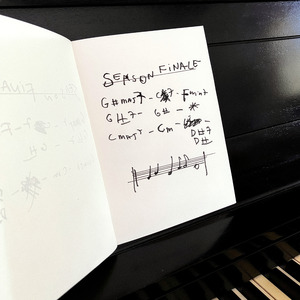 SEASON FINALE
G#maj7 - C#7 - Fmin7
G#7 - G# -
Cmaj7 - Cm -
D#7
D#